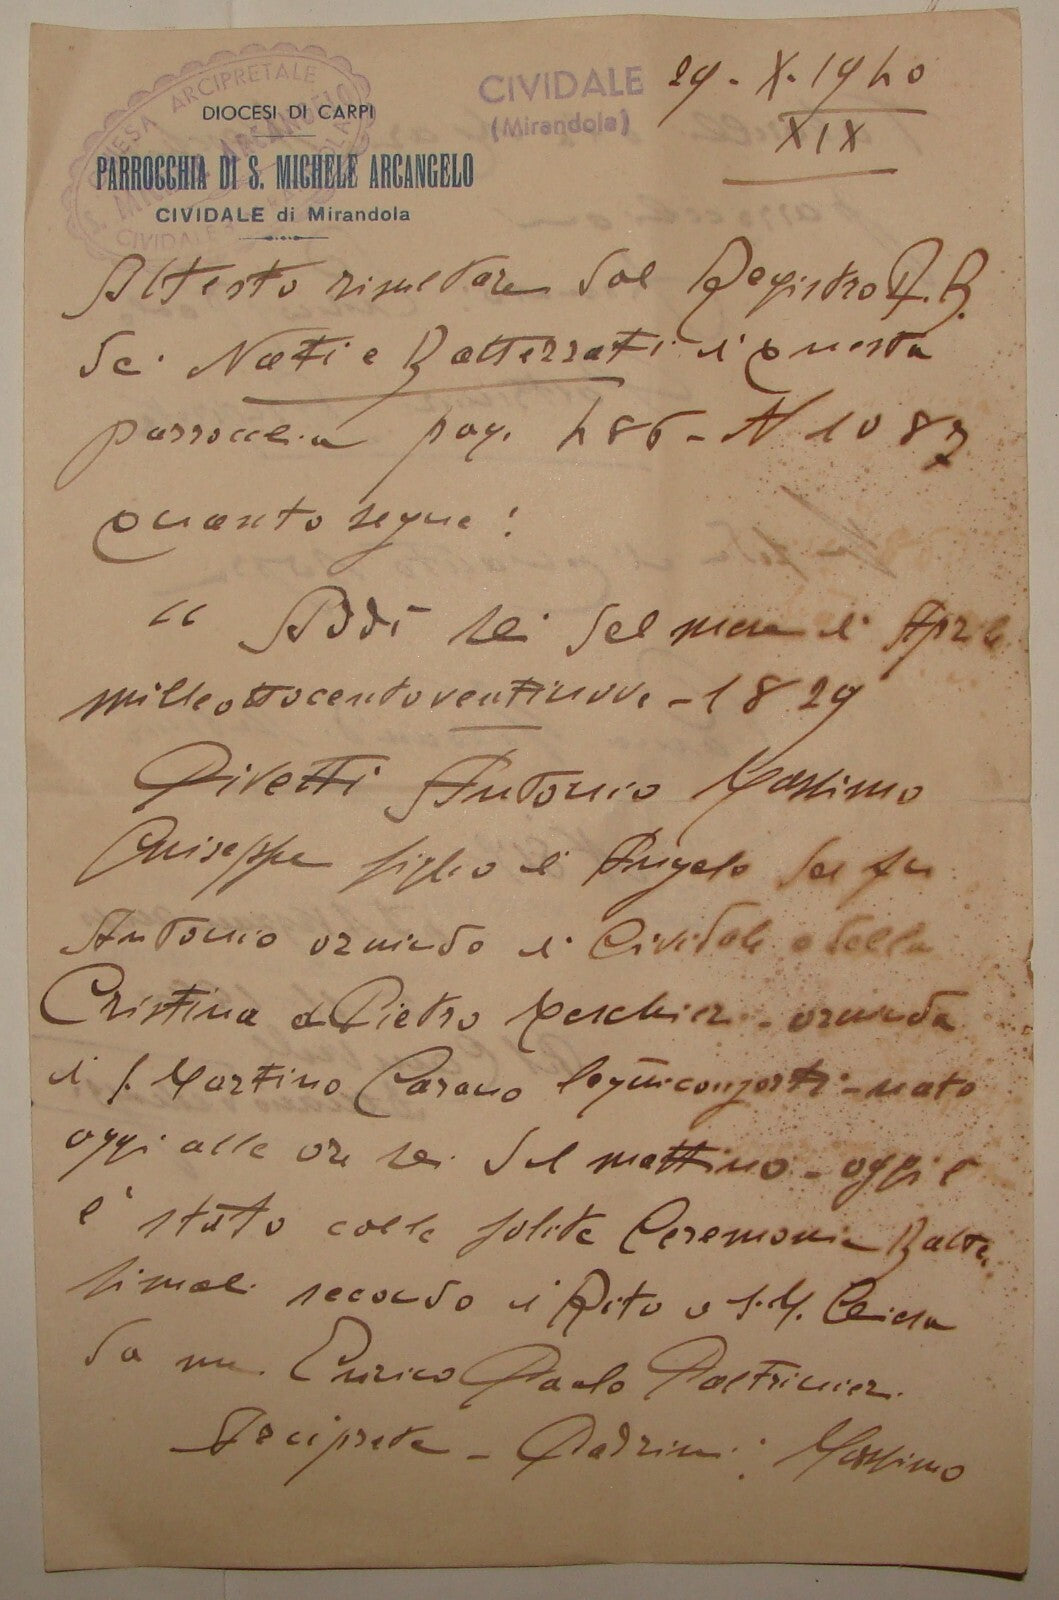 CHIESA ARCIPRETALE
S. MICHELE ARCANGELO
CIVIDALE
DIOCESI DI CARPI
PARROCCHIA DI S. MICHELE ARCANGELO
CIVIDALE di Mirandola
CIVIDALE
(Mirandola)
29 - X - 1940
XIX
Attesto risultare dal Registro
dei Nati e Battezzati di questa
parrocchia pag. 486 - N 1087
quanto segue:
" Addì sei del mese di Aprile
milleottocentoventinove - 1829
Pivetti Antonio Massimo
Giuseppe figlio di Angelo del fu
Antonio oriundo di Cividale e della
Cristina di Pietro Meschieri - oriunda
di S. Martino Carano - nato
oggi alle ore sei del mattino - oggi
è stato colle solite Ceremonie Batte
simali secondo il Rito S. M. Chiesa
da me Enrico Paolo Paltrinieri
Arciprete - Padrini: Massimo